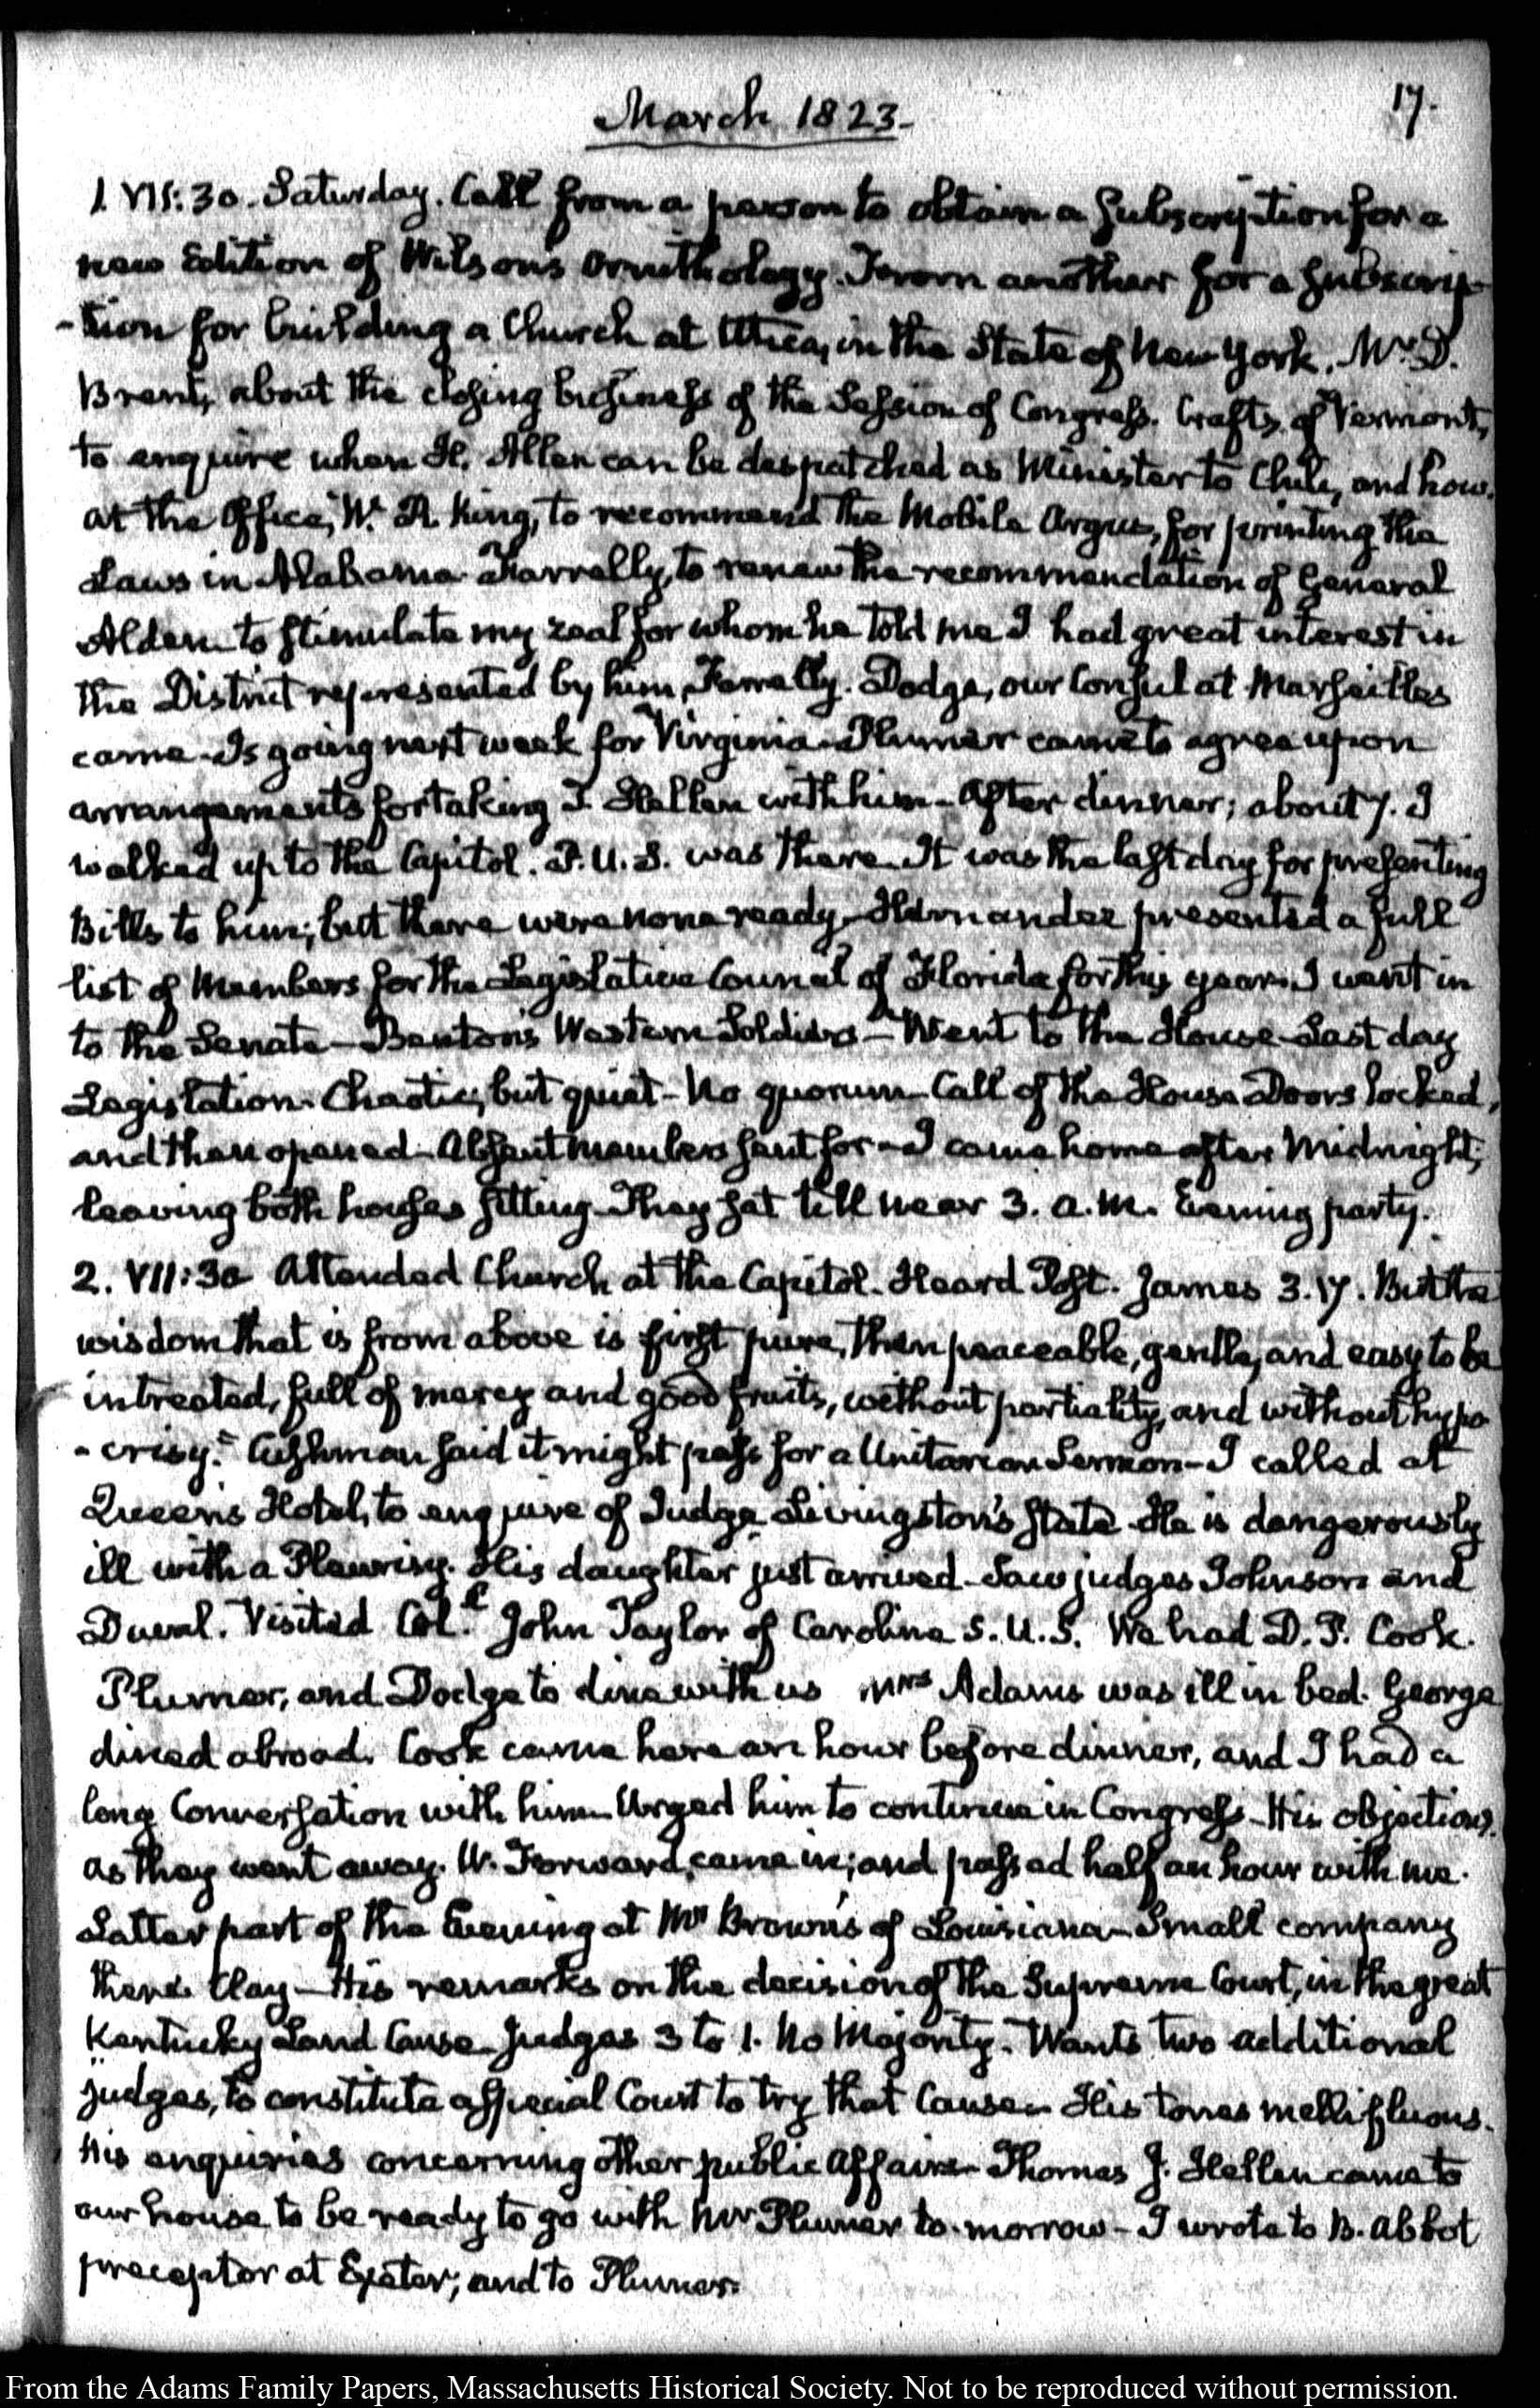 March 1823.
17.
1. VII:30. Saturday. Call from a person to obtain a subscription for a
new Edition of Wilson's Ornithology. From another for a subscrip-
-tion for building a Church at Utica, in the State of New York. Mr. D.
Brent, about the closing business of the Session of Congress. Crafts, of Vermont,
to enquire when H. Allen can be despatched as Minister to Chili, and how.
at the Office, W. R. King, to recommend the Mobile Argus, for printing the
Laws in Alabama. Farrelly, to renew the recommendation of General
Alden to stimulate my zeal for whom he told me I had great interest in
the District represented by him, Farrelly. Dodge, our Consul at Marseilles
came. Is going next week for Virginia. Plumer came to agree upon
arrangements for taking T. Hellen with him. After dinner; about 7. I
walked up to the Capitol. P. U. S. was there. It was the last day for presenting
Bills to him; but there were none ready. Hernandez presented a full
list of Members for the Legislative Council of Florida for this year. I went in
to the Senate—Benton's Western Soldiers—Went to the House—Last day
Legislation. Chaotic; but quiet—No quorum—Call of the House Doors locked,
and then opened—Absent members sent for—I came home after Midnight;
leaving both houses sitting. They sat till near 3. a.m. Evening party.
2. VII:30 Attended Church at the Capitol. Heard Post. James 3.17. But the
wisdom that is from above is first pure, then peaceable, gentle, and easy to be
intreated, full of mercy and good fruits, without partiality, and without hypo
-crisy." Cushman said it might pass for a Unitarian Sermon—I called at
Queen's Hotel, to enquire of Judge Livingston's state. He is dangerously
ill with a Pleurisy. His daughter just arrived. Saw judges Johnson and
Duval. Visited Coll. John Taylor of Carolina S. U. S. We had D. P. Cook.
Plumer, and Dodge to dine with us Mrs Adams was ill in bed. George
dined abroad. Cook came here an hour before dinner, and I had a
long Conversation with him. Urged him to continue in Congress—His objections.
as they went away. W. Forward, came in; and passed half an hour with me.
Latter part of the Evening at Mr Brown's of Louisiana—Small company
there. Clay—His remarks on the decision of the Supreme Court, in the great
Kentucky Land Cause. Judges 3 to 1. No Majority. Wants two additional
judges, to constitute a special Court to try that Cause. His tones mellifluous.
His enquiries concerning other public Affairs. Thomas J. Hellen came to
our house to be ready to go with Mr Plumer to-morrow—I wrote to B. Abbot
preceptor at Exeter; and to Plumer.
From the Adams Family Papers, Massachusetts Historical Society. Not to be reproduced without permission.